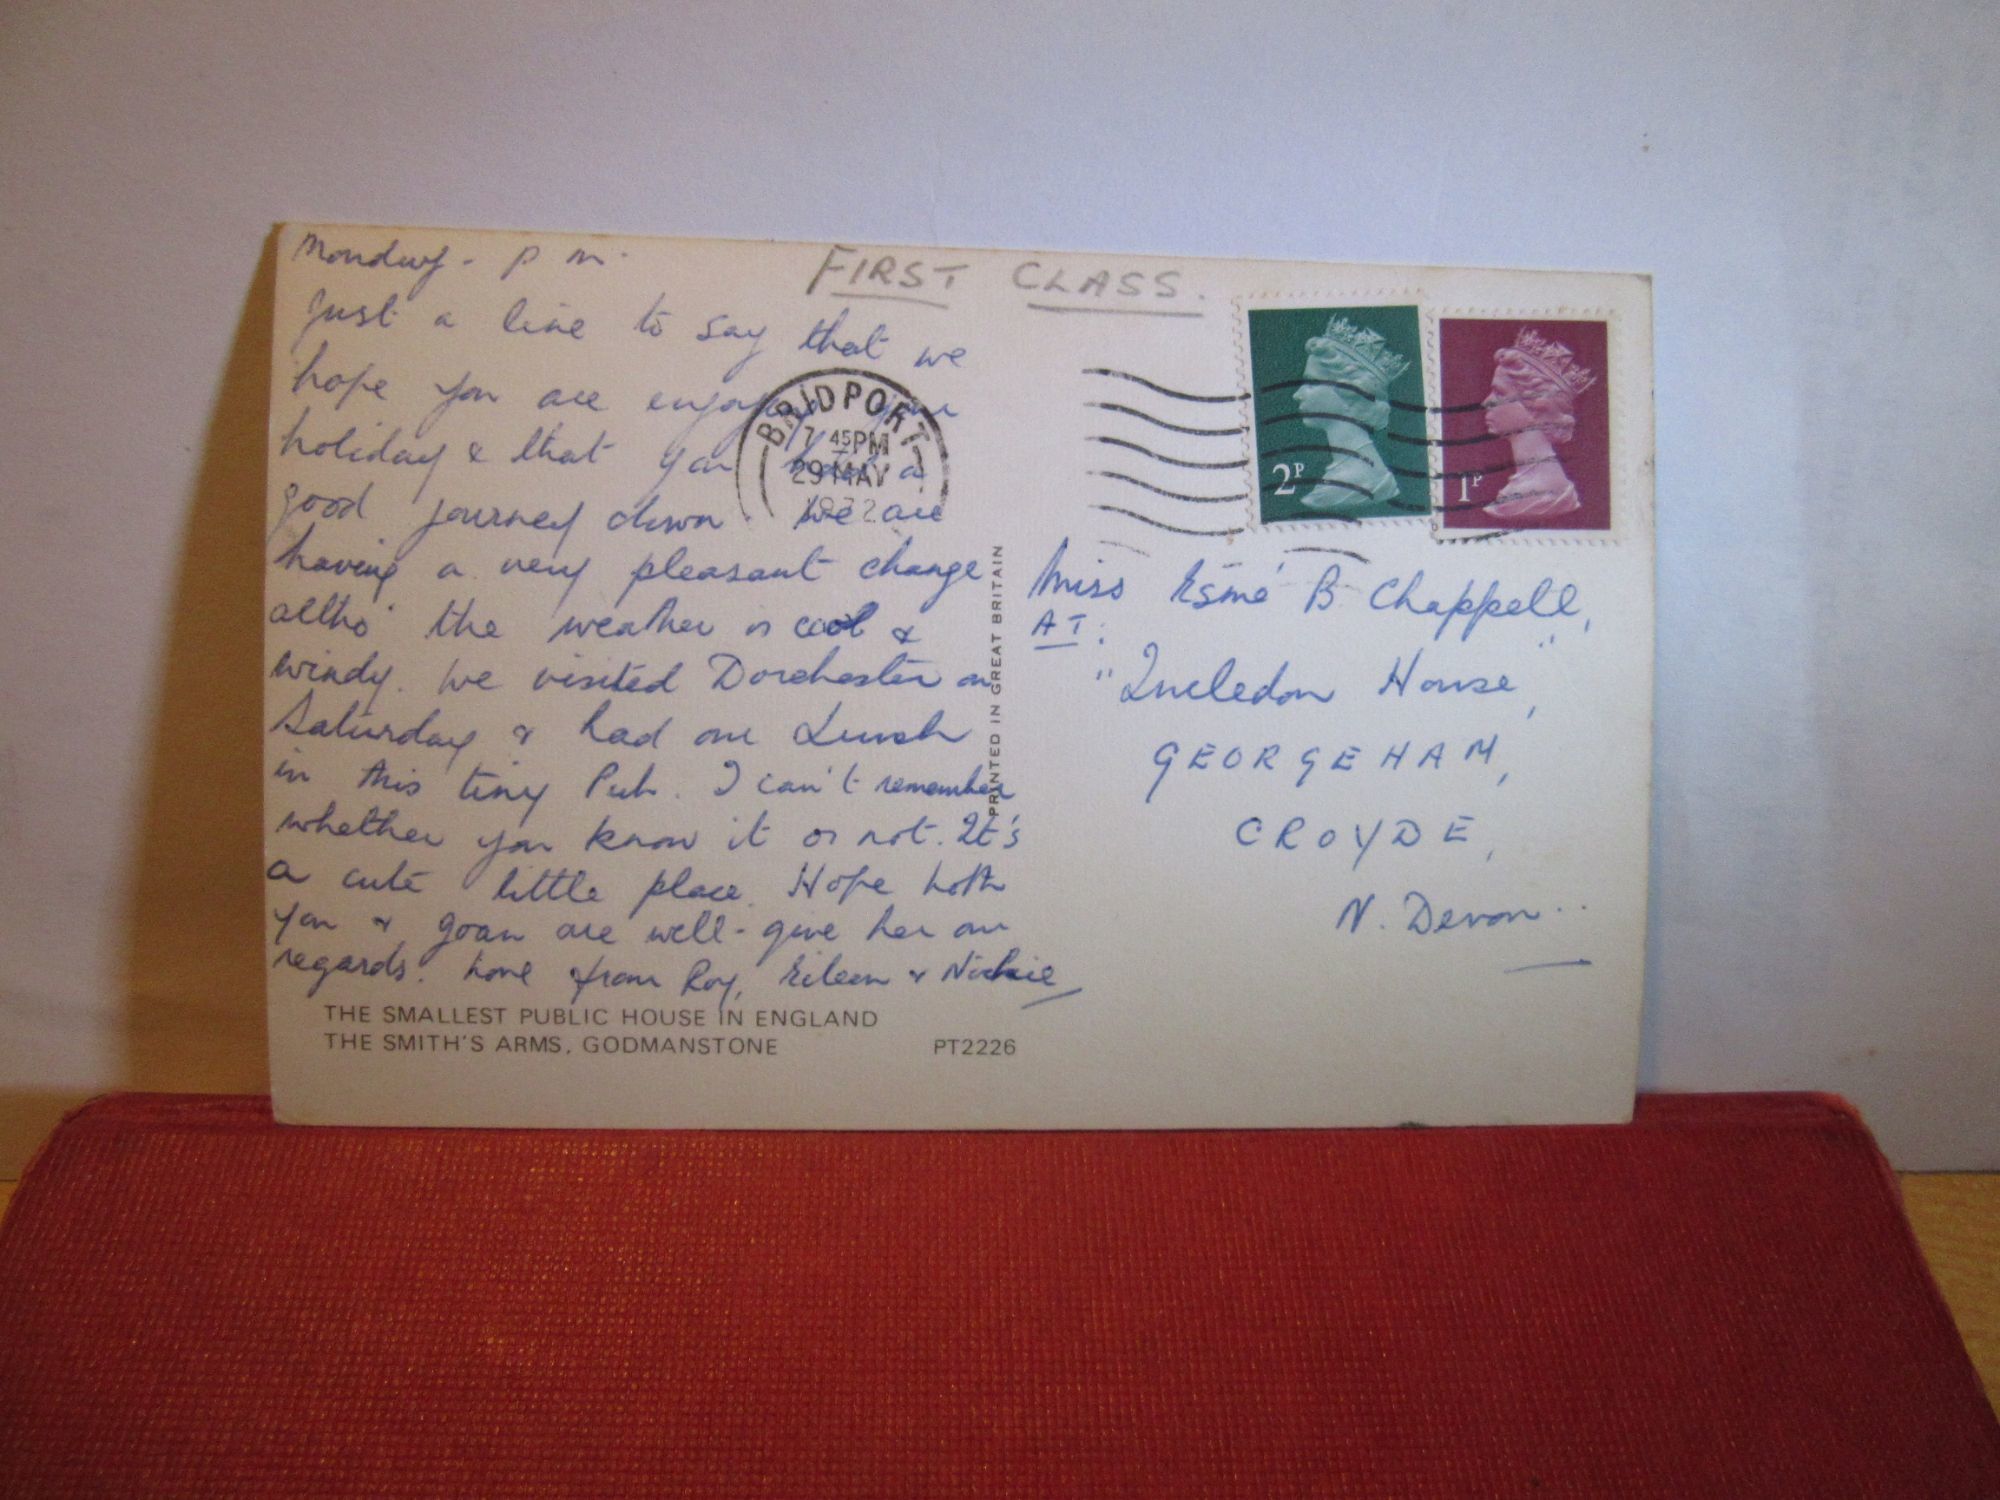 Monday - p m.
Just a line to say that we
hope you are enjoying your
holiday & that you had a
good journey down. We are
having a very pleasant change
altho' the weather is cool &
windy. We visited Dorchester on
Saturday & had our Lunch
in this tiny Pub. I can't remember
whether you know it or not. It's
a cute little place. Hope both
you & Joan are well - give her our
regards. Love from Roy, Eileen & Nickie
THE SMALLEST PUBLIC HOUSE IN ENGLAND
THE SMITH'S ARMS, GODMANSTONE PT2226
PRINTED IN GREAT BRITAIN
FIRST CLASS.
BRIDPORT
7 45PM
29 MAY
1972
2P
1P
Miss Esmé B Chappell,
AT:
"Incledon House",
GEORGEHAM,
CROYDE,
N. Devon..